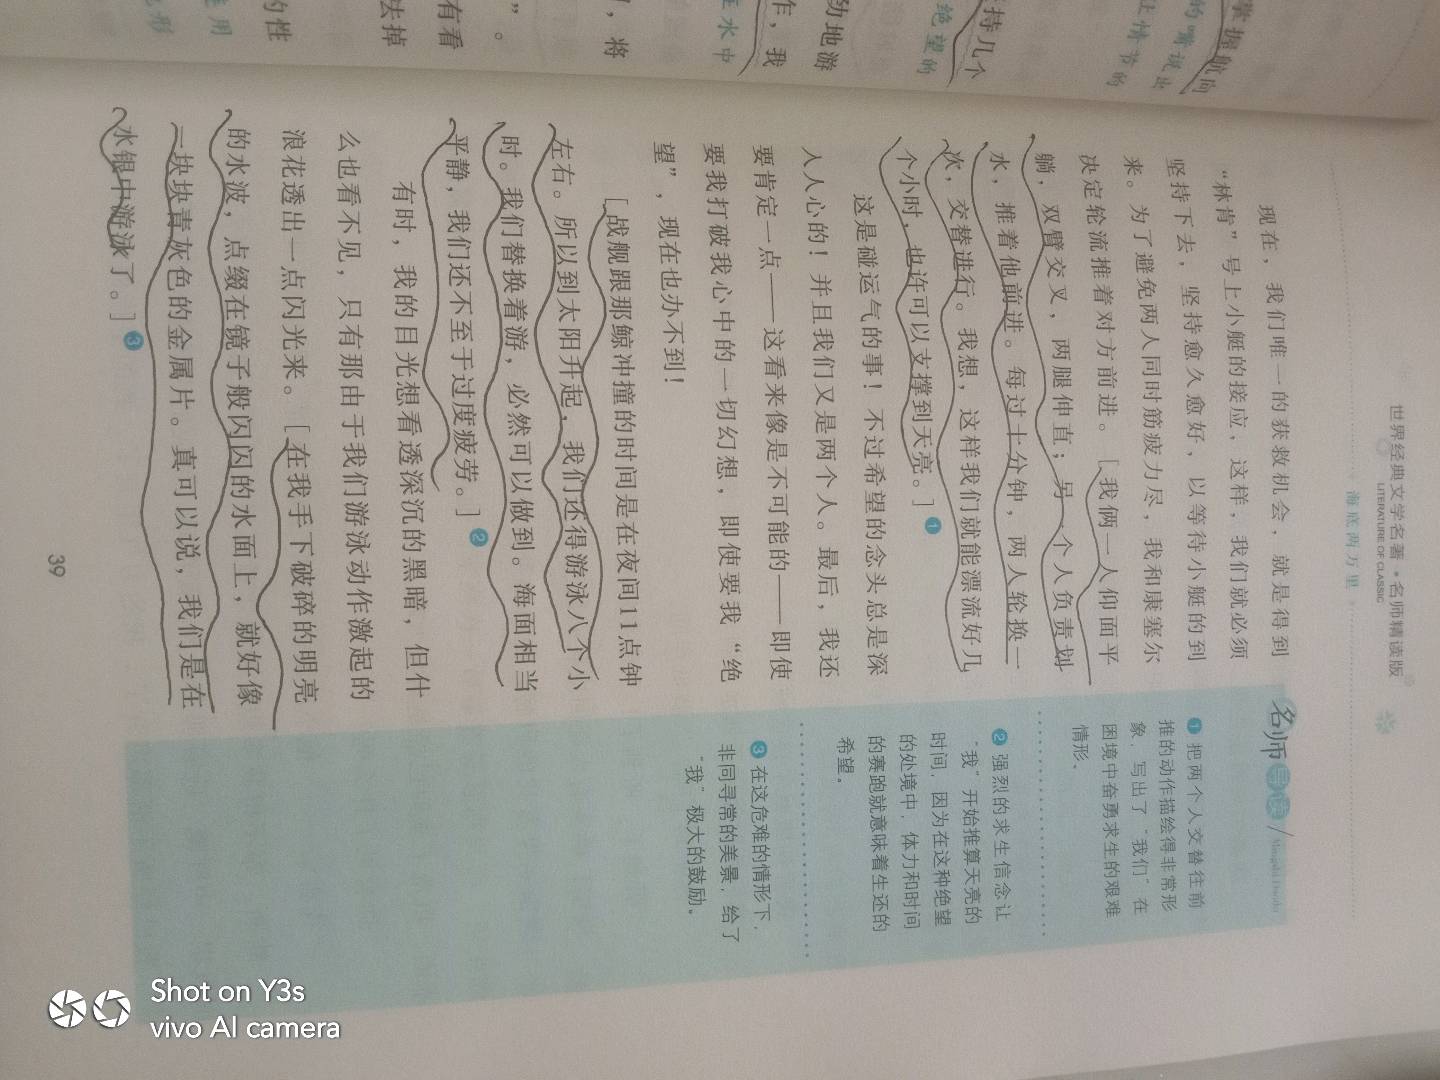 世界经典文学名著·名师精读版
LITERATURE OF CLASSIC
海底两万里
现在，我们唯一的获救机会，就是得到
“林肯”号上小艇的接应，这样，我们就必须
坚持下去，坚持愈久愈好，以等待小艇的到
来。为了避免两人同时筋疲力尽，我和康塞尔
决定轮流推着对方前进。［我俩一人仰面平
躺，双臂交叉，两腿伸直；另一个人负责划
水，推着他前进。每过十分钟，两人轮换一
次，交替进行。我想，这样我们就能漂流好几
个小时，也许可以支撑到天亮。］❶
这是碰运气的事！不过希望的念头总是深
入人心的！并且我们又是两个人。最后，我还
要肯定一点——这看来像是不可能的——即使
要我打破我心中的一切幻想，即使要我“绝
望”，现在也办不到！
［战舰跟那鲸冲撞的时间是在夜间11点钟
左右。所以到太阳升起，我们还得游泳八个小
时。我们替换着游，必然可以做到。海面相当
平静，我们还不至于过度疲劳。］❷
有时，我的目光想看透深沉的黑暗，但什
么也看不见，只有那由于我们游泳动作激起的
浪花透出一点闪光来。［在我手下破碎的明亮
的水波，点缀在镜子般闪闪的水面上，就好像
一块块青灰色的金属片。真可以说，我们是在
水银中游泳了。］❸
名师导读
Mingshi Daodu
❶ 把两个人交替往前
推的动作描绘得非常形
象，写出了“我们”在
困境中奋勇求生的艰难
情形。
❷ 强烈的求生信念让
“我”开始推算天亮的
时间，因为在这种绝望
的处境中，体力和时间
的赛跑就意味着生还的
希望。
❸ 在这危难的情形下，
非同寻常的美景，给了
“我”极大的鼓励。
39
掌握航向
的嘴说出
让情节的
持几个
绝望的
劲地游
作，我
在水中
，将
”。
有看
去掉
的性
运用
Shot on Y3s
vivo AI camera